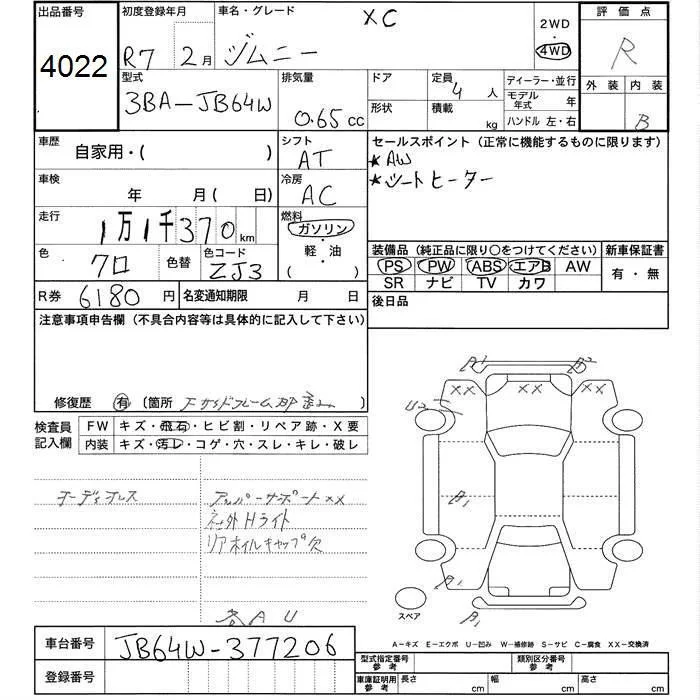 出品番号 初度登録年月 車名・グレード XC 2WD 評価点
4022 R7 2月 ジムニー 4WD R
型式 排気量 ドア 定員 4 人 ディーラー・並行 外装 内装
3BA-JB64W 0.65cc 形状 積載 kg モデル年式 年 B
ハンドル 左・右
車歴 自家用・( ) シフト AT セールスポイント(正常に機能するものに限ります)
★AW
車検 年 月( 日) 冷房 AC ★シートヒーター
走行 1万1千370km 燃料 ガソリン・軽・油( )
色 クロ 色替 色コード ZJ3
装備品(純正品に限り○をつけてください) 新車保証書
PS PW ABS エアB AW 有・無
SR ナビ TV カワ
R券 6180円 名変通知期限 月 日 後日品
注意事項申告欄(不具合内容等は具体的に記入して下さい)
修復歴 有 (箇所
検査員記入欄 FW キズ・飛石・ヒビ割・リペア跡・X要
内装 キズ・汚レ・コゲ・穴・スレ・キレ・破レ
オーディオレス アッパーサポートXX
社外Hライト
リアホイルキャップ欠
各AU
A1 A2
XX XX XX
U2
A1
A1
A1
スペア
A-キズ E-エクボ U-凹み W-補修跡 S-サビ C-腐食 XX-交換済
車台番号 JB64W-377206
型式指定番号参考 類別区分番号参考
登録番号 車庫証明用参考 長さ cm 幅 cm 高さ cm